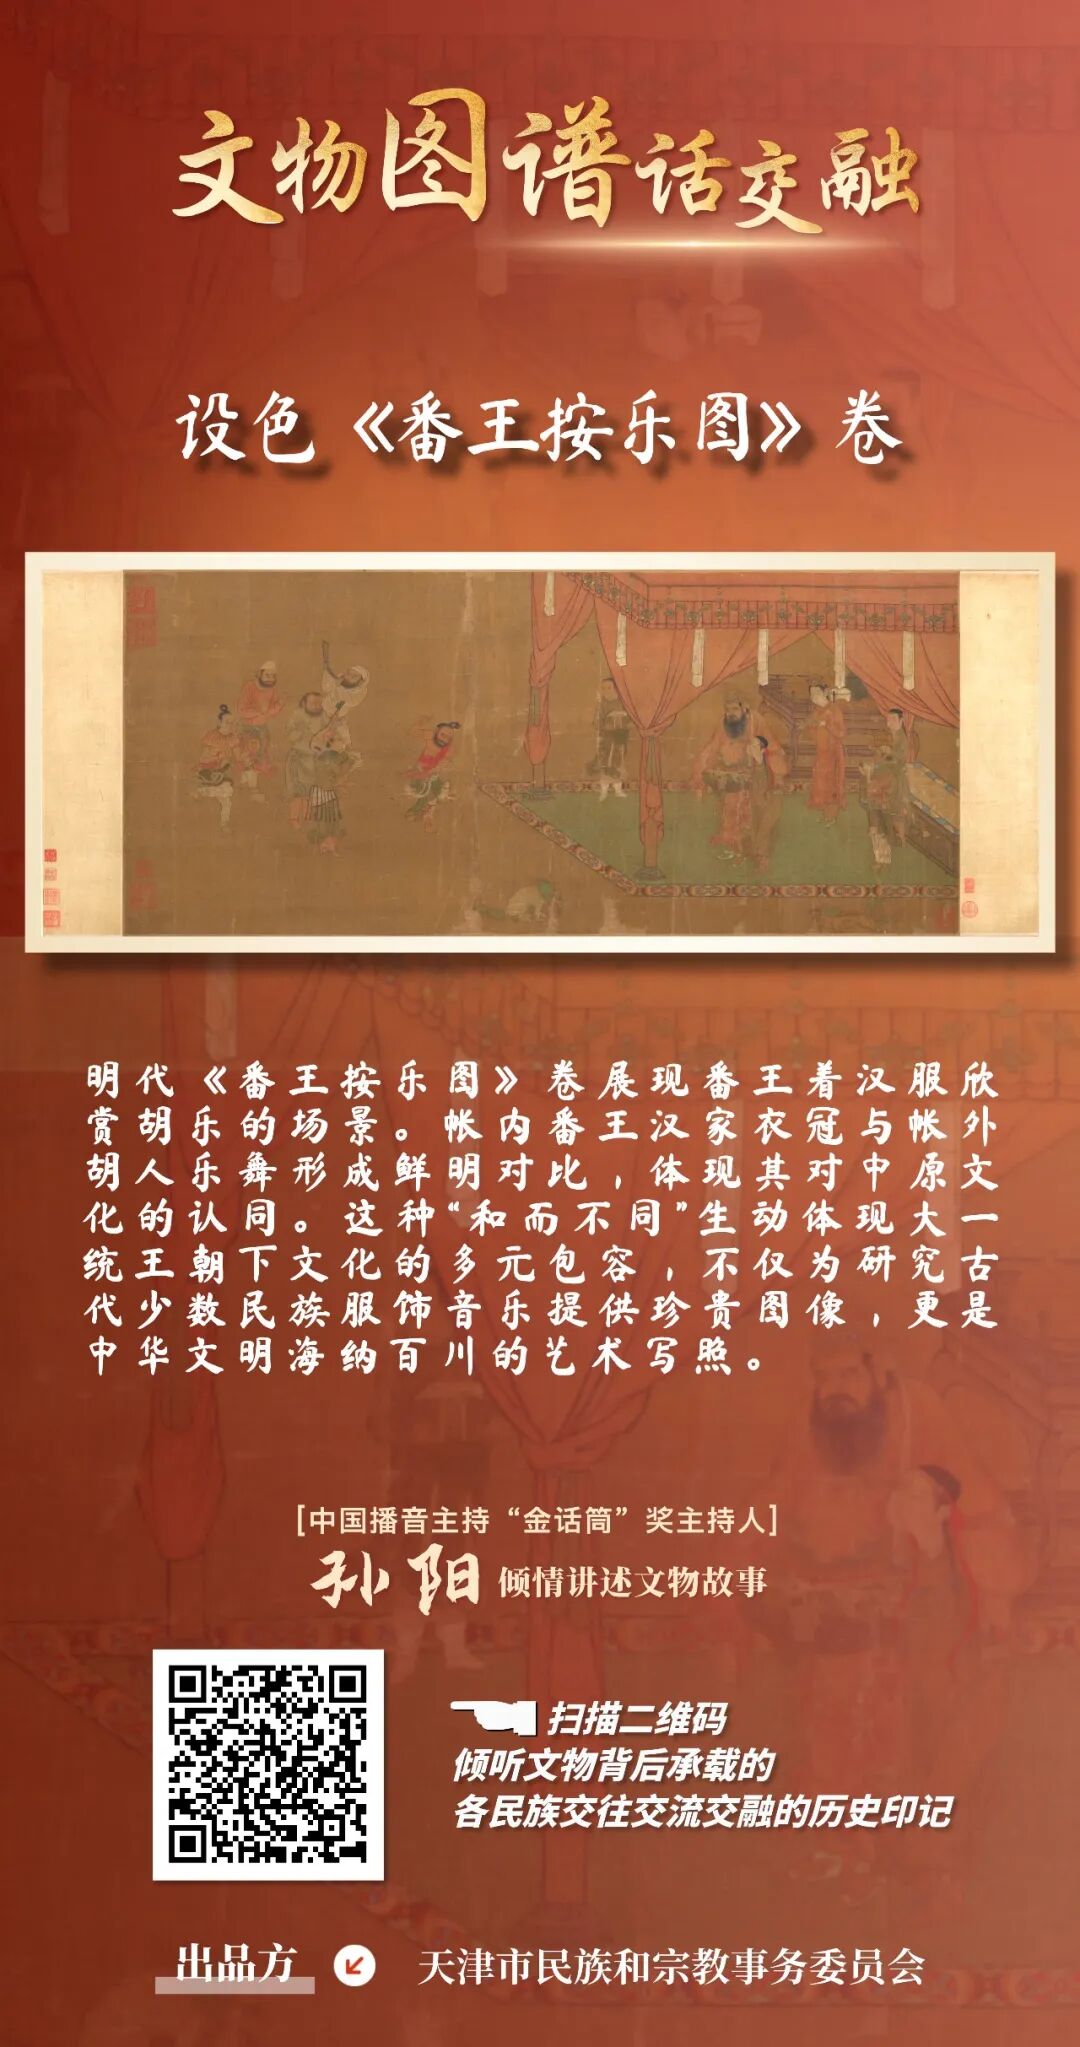 文物图谱话交融
设色《番王按乐图》卷
明代《番王按乐图》卷展现番王着汉服欣
赏胡乐的场景。帐内番王汉家衣冠与帐外
胡人乐舞形成鲜明对比，体现其对中原文
化的认同。这种“和而不同”生动体现大一
统王朝下文化的多元包容，不仅为研究古
代少数民族服饰音乐提供珍贵图像，更是
中华文明海纳百川的艺术写照。
[中国播音主持“金话筒”奖主持人]
孙阳 倾情讲述文物故事
扫描二维码
倾听文物背后承载的
各民族交往交流交融的历史印记
出品方 天津市民族和宗教事务委员会